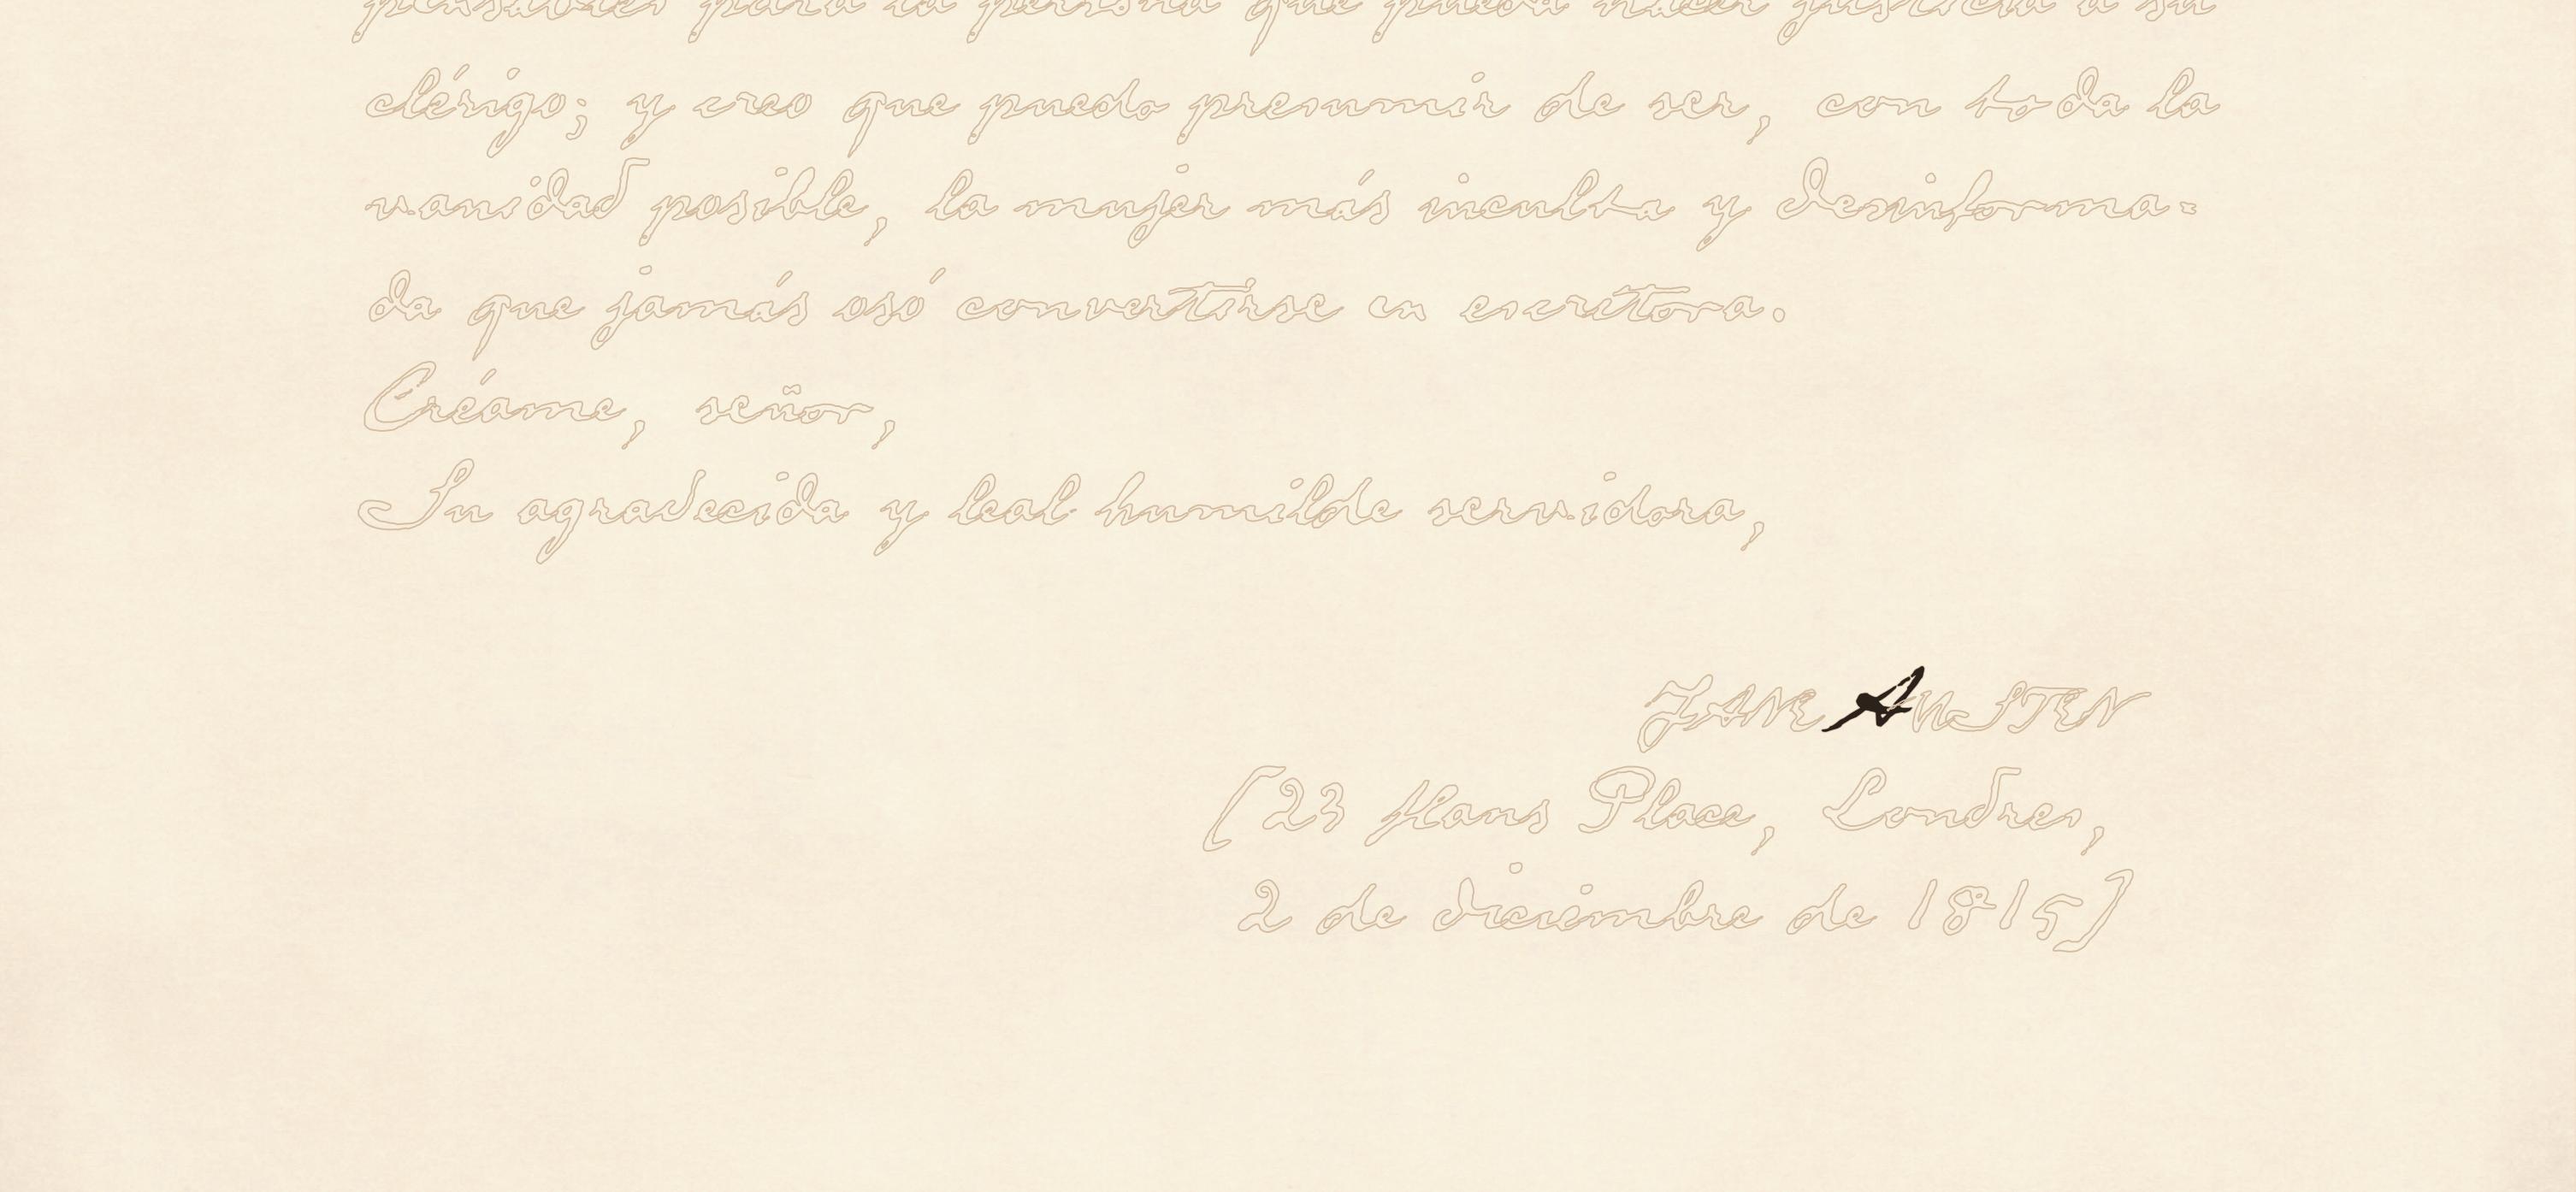 pensables para la persona que pueda hacer justicia a su
clérigo; y creo que puedo presumir de ser, con toda la
vanidad posible, la mujer más inculta y desinforma-
da que jamás osó convertirse en escritora.
Créame, señor,
Su agradecida y leal humilde servidora,
JANE AUSTEN
[23 Hans Place, Londres,
2 de diciembre de 1815]